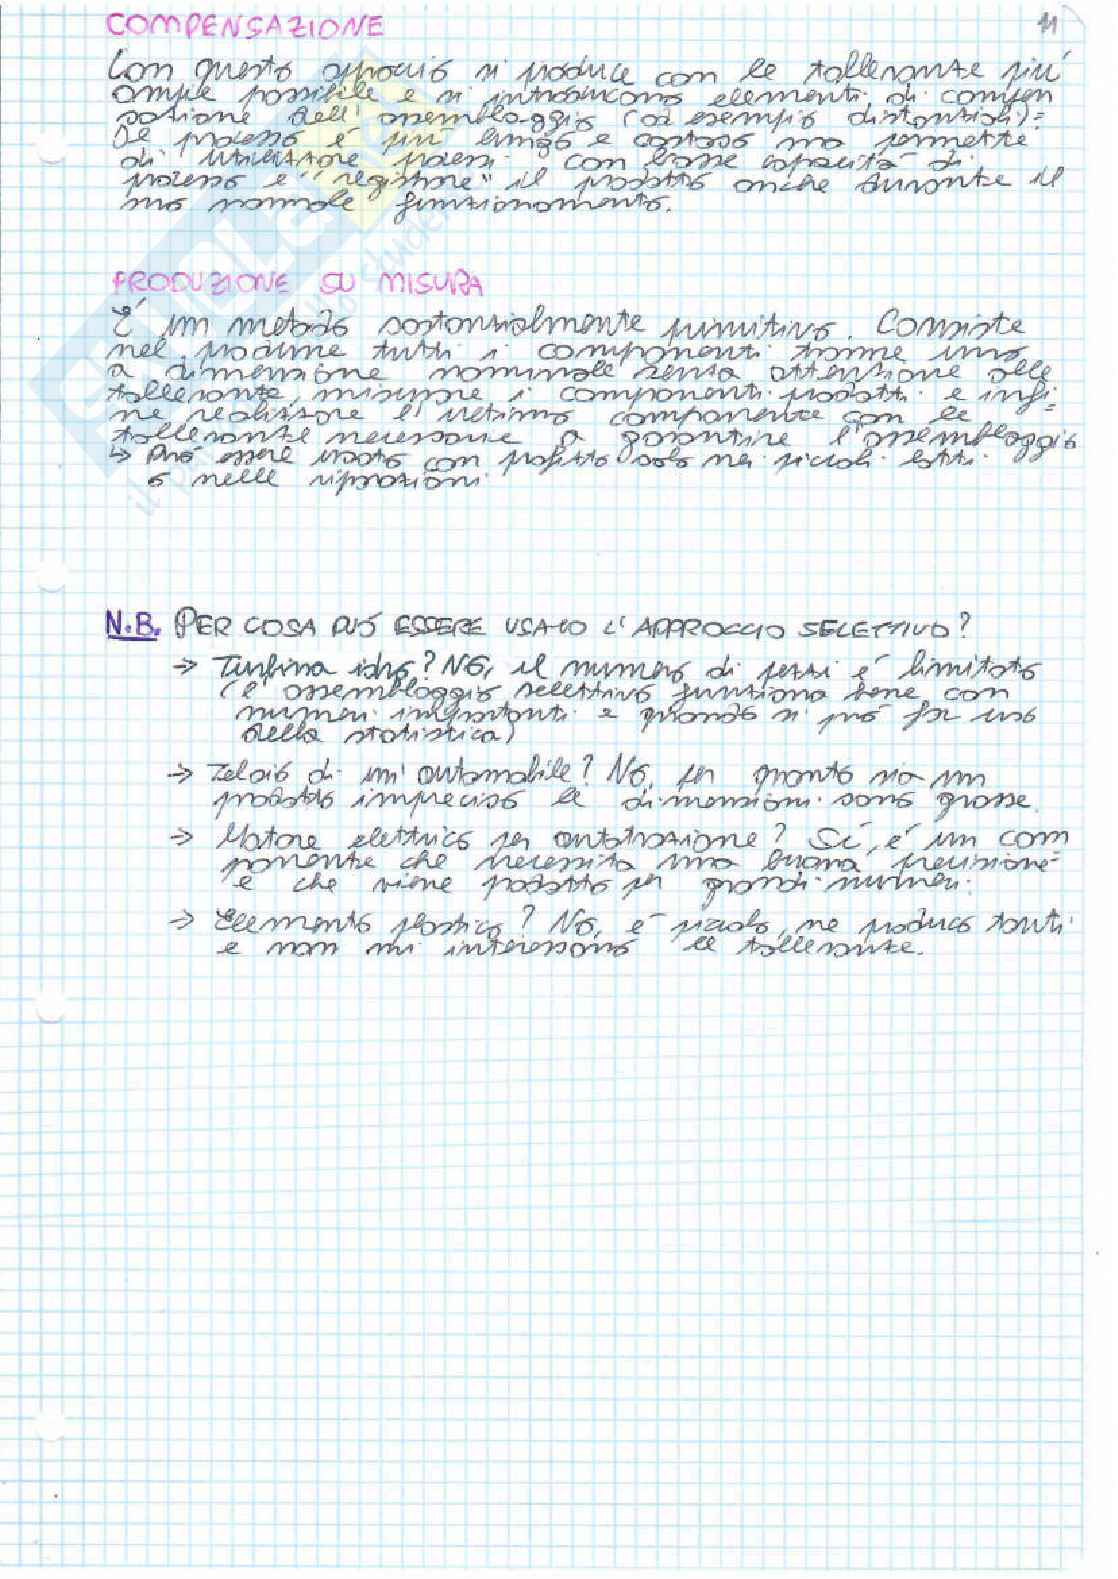 11
COMPENSAZIONE
Con questo approccio si produce con le tolleranze più
ampie possibile e si introducono elementi di compen
sazione dell'assemblaggio (ad esempio distanziali).
Il processo è più lungo e costoso ma permette
di utilizzare processi con basse capacità di
processo e "registrare" il prodotto anche durante il
suo normale funzionamento.
PRODUZIONE SU MISURA
È un metodo sostanzialmente primitivo. Consiste
nel produrre tutti i componenti tranne uno
a dimensione nominale senza attenzione alle
tolleranze, misurare i componenti prodotti e infi
ne realizzare l'ultimo componente con le
tolleranze necessarie a garantire l'assemblaggio
↳ Può essere usato con profitto solo nei piccoli lotti
o nelle riparazioni.
N.B. PER COSA PUÒ ESSERE USATO L'APPROCCIO SELETTIVO?
→ Turbina idro? NO, il numero di pezzi è limitato
(l'assemblaggio selettivo funziona bene con
numeri importanti e quando si può far uso
della statistica)
→ Telaio di un'automobile? No, per quanto sia un
prodotto impreciso le dimensioni sono grosse.
→ Motore elettrico per autotrazione? Sì, è un com
ponente che necessita una buona precisione
e che viene prodotto per grandi numeri.
→ Elemento plastico? No, è piccolo, ne produco tanti
e non mi interessano le tolleranze.